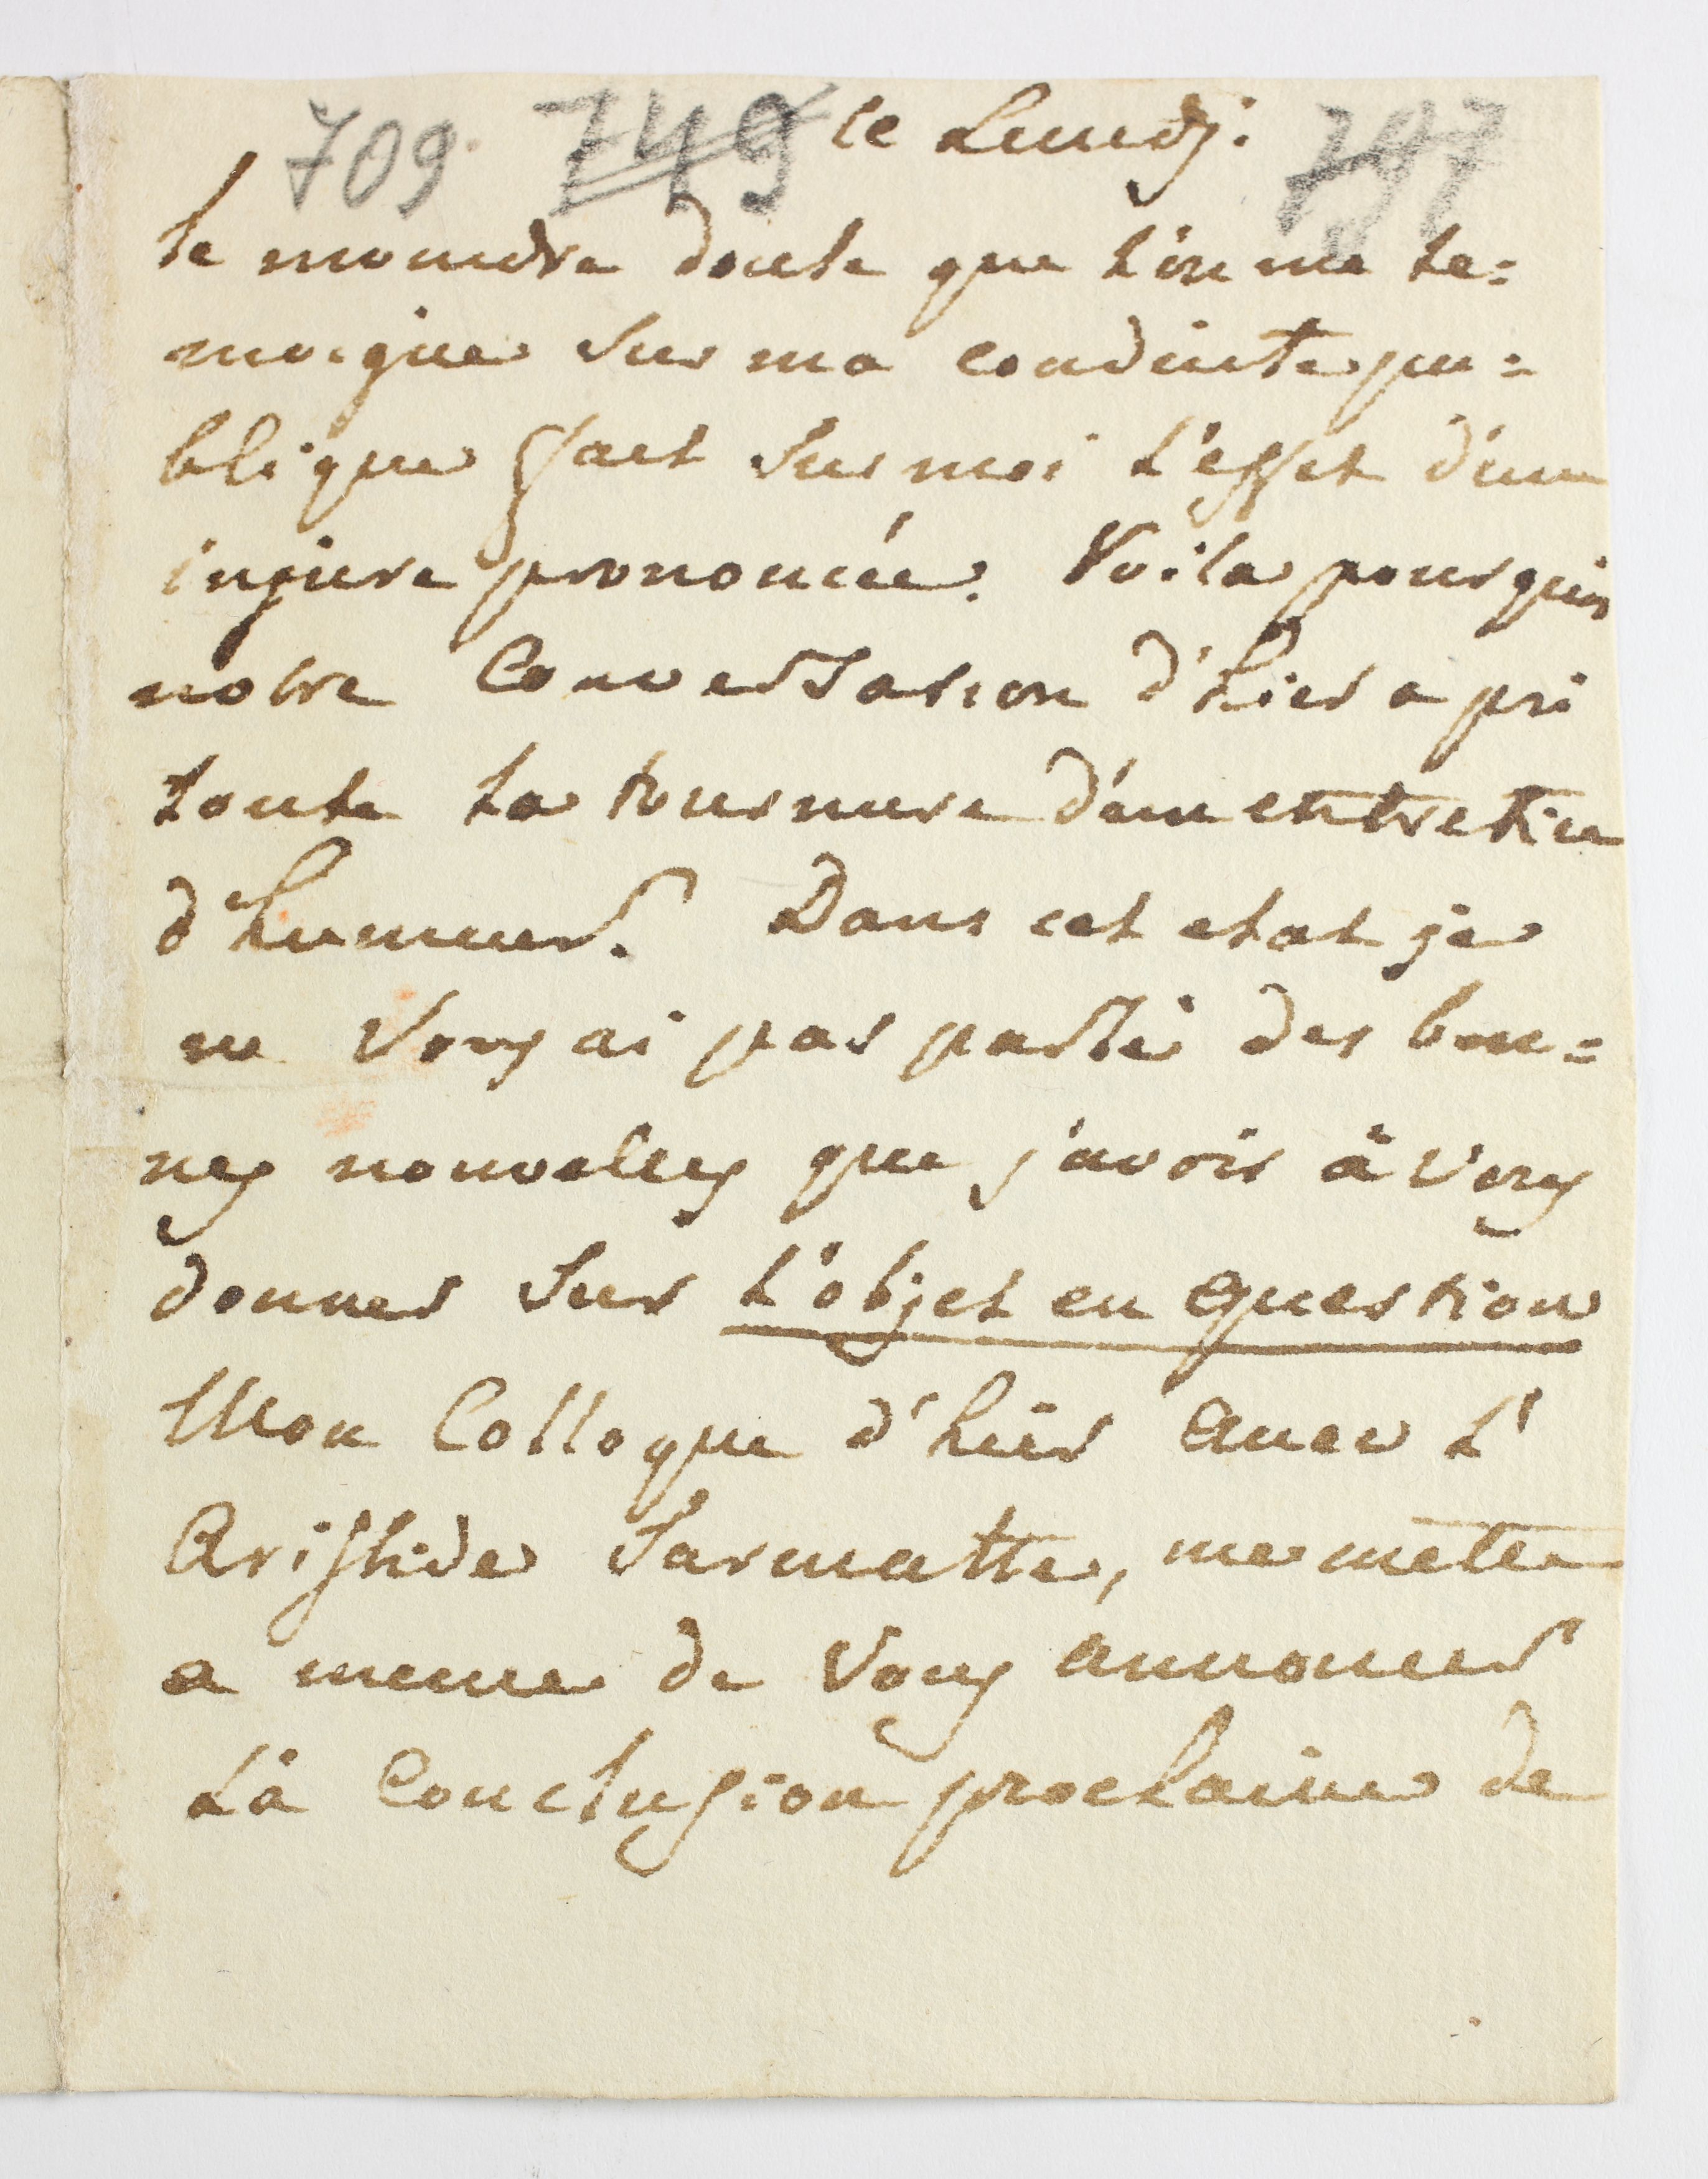 709. 749 le Lundj. 797
le moindre doute que l'on me te=
moigne sur ma conduite pu=
blique fait sur moi l'effet d'une
injure prononcée. Voila pourquoi
notre Conversation d'hier a pri
toute la tournure d'un entretien
d'humeur. Dans cet etat je
ne Vous ai pas parlé des bon=
nes nouvelles que j'avois à Vous
donner sur l'objet en question
Mon Colloque d'hier avec L'
Aristide Sarmatte, me mette
a meme de Vous annoncer
Là Conclusion prochaine de